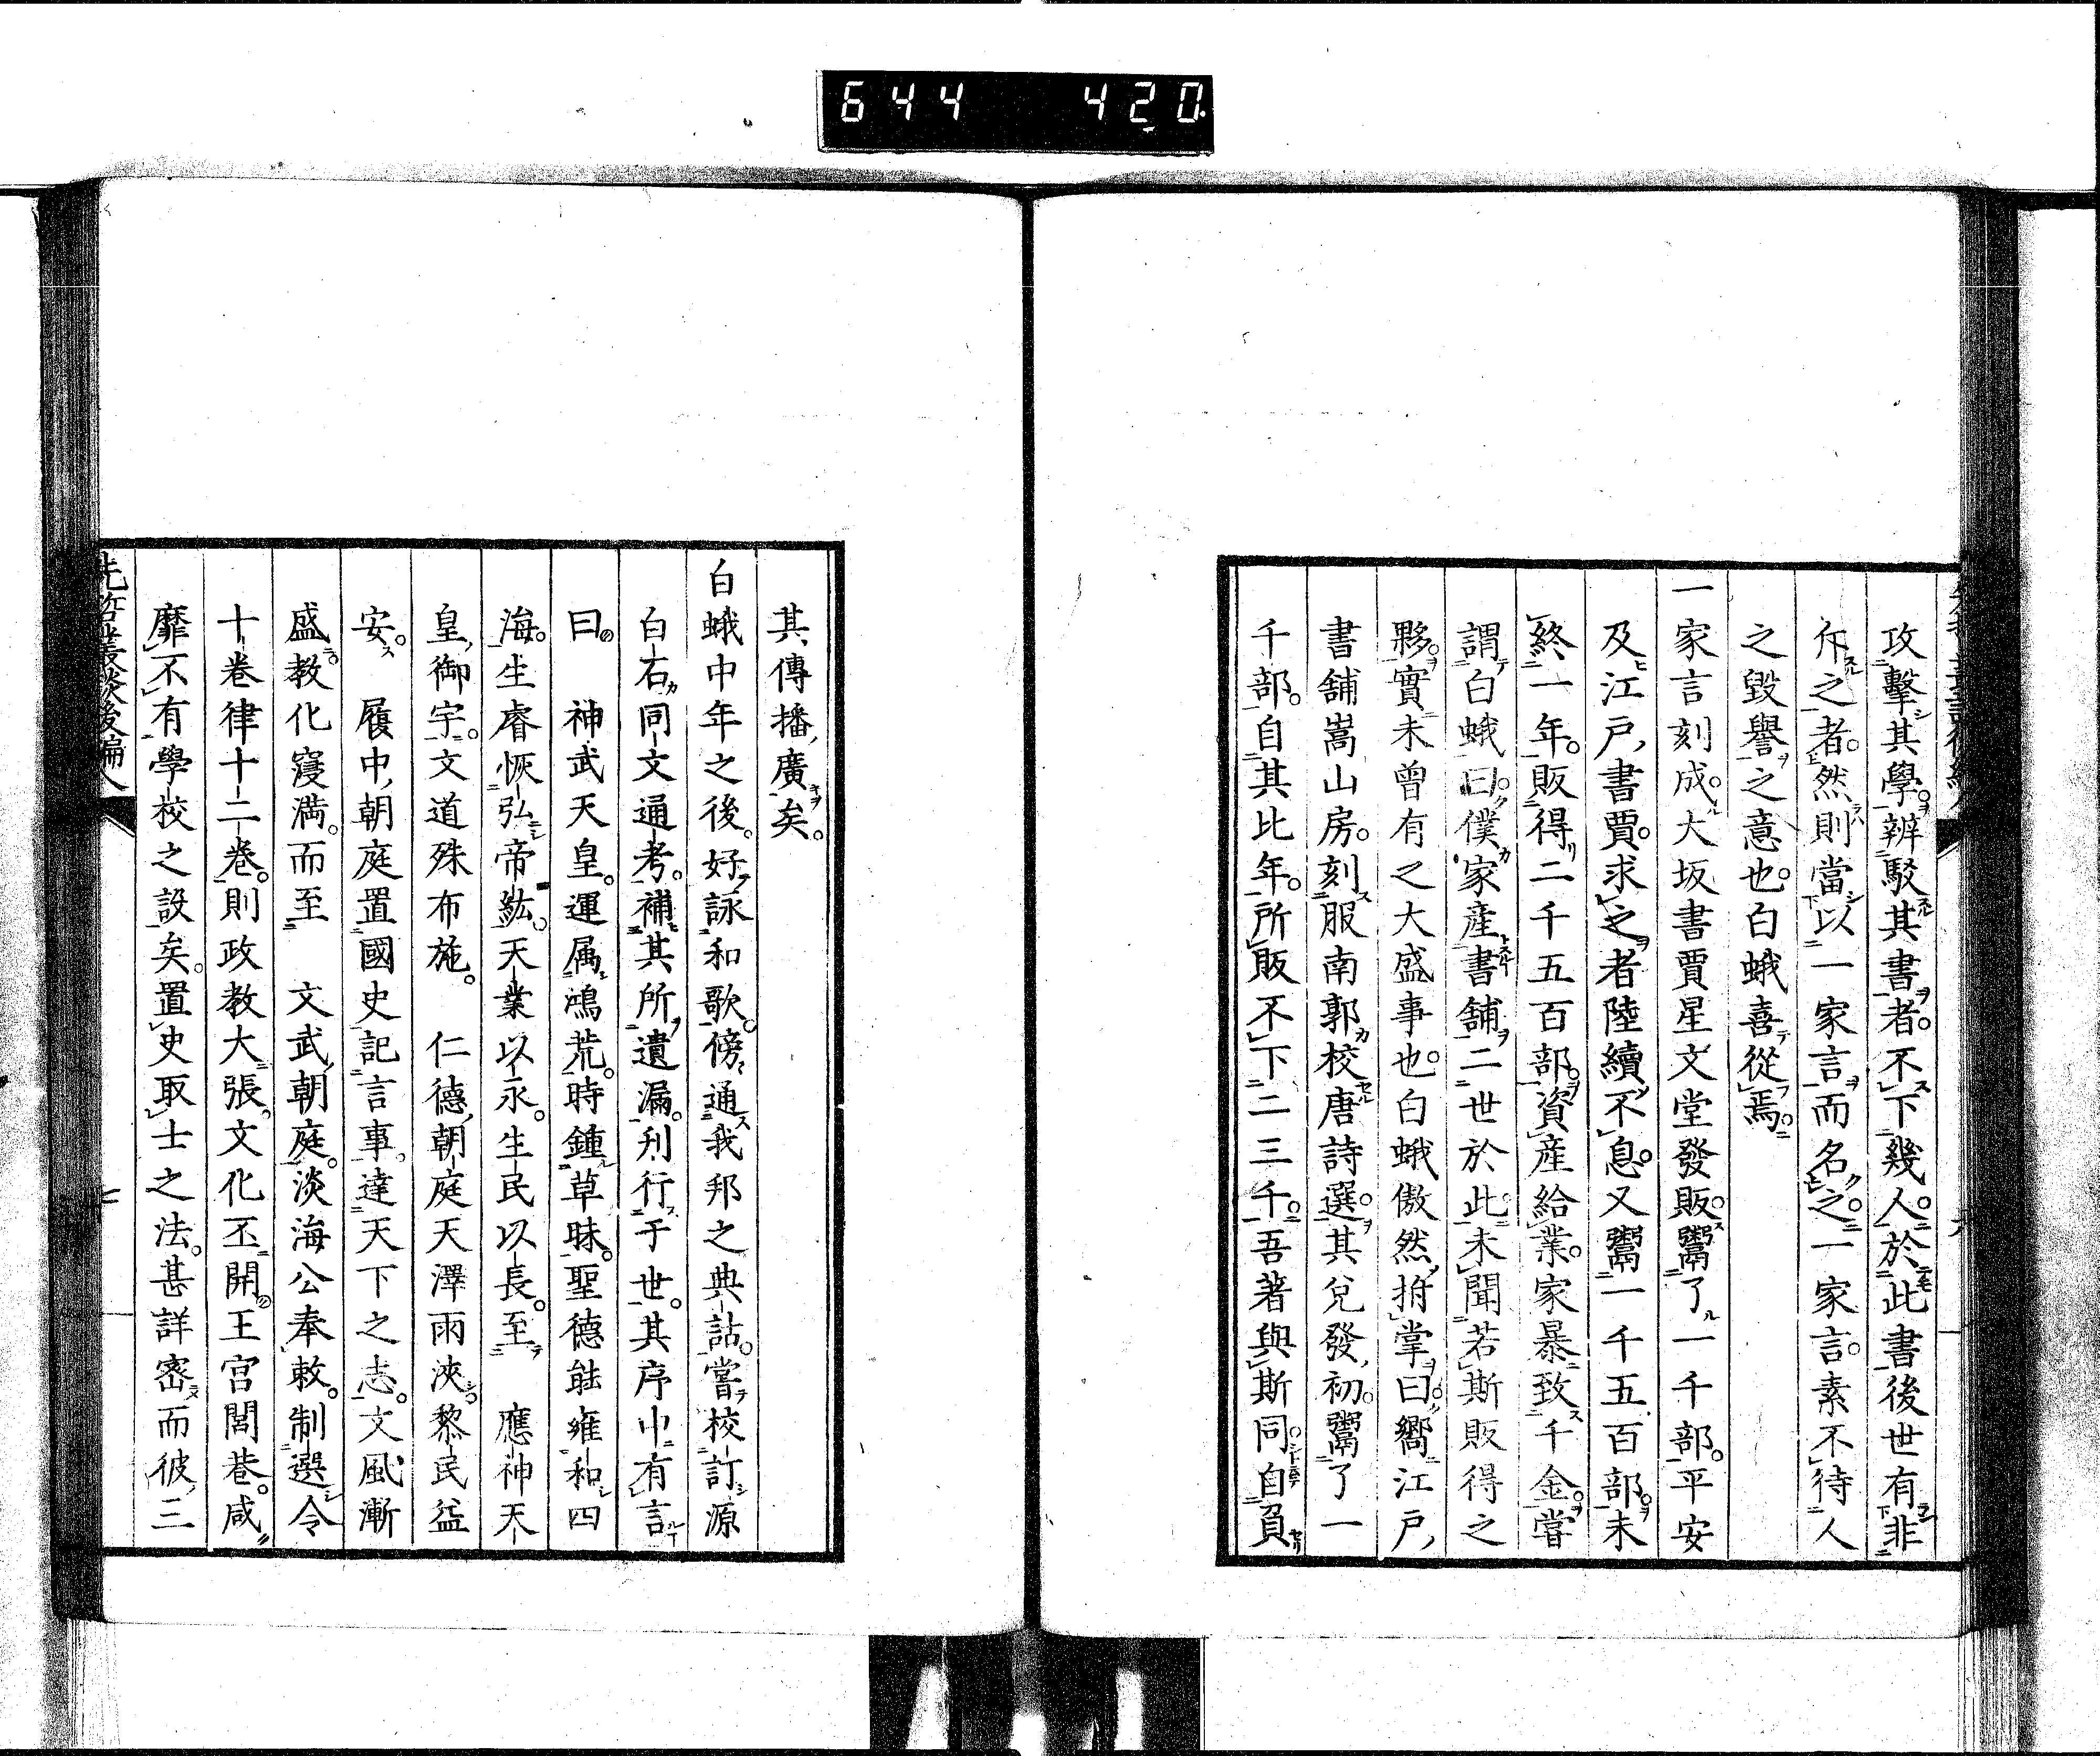 644 420
攻擊其學辨駁其書者不下幾人於此書後世有非
斥之者然則當以一家言而名之一家言素不待人
之毀譽之意也白蛾喜從焉
一家言刻成大坂書賈星文堂發販鬻了一千部平安
及江戶書賈求之者陸續不息又鬻一千五百部未
終一年販得二千五百部資產給業家暴致千金嘗
謂白蛾曰僕家產書舖二世於此未聞若斯販得之
夥實未曾有之大盛事也白蛾傲然拊掌曰嚮江戶
書舖嵩山房刻服南郭校唐詩選其兌發初鬻了一
千部自其比年所販不下二三千吾著與斯同自負
其傳播廣矣
白蛾中年之後好詠和歌傍通我邦之典詁嘗校訂源
白石同文通考補其所遺漏刋行于世其序中有言
曰 神武天皇運属鴻荒時鍾草昧聖德能雍和四
海生睿恢弘帝紘天業以永生民以長至 應神天
皇御宇文道殊布施 仁德朝庭天澤雨浹黎民益
安 履中朝庭置國史記言事達天下之志文風漸
盛教化寖満而至 文武朝庭淡海公奉敕制選令
十卷律十二卷則政教大張文化丕開王宮閭巷咸
靡不有學校之設矣置史取士之法甚詳密而彼三
先哲叢談後編八 七